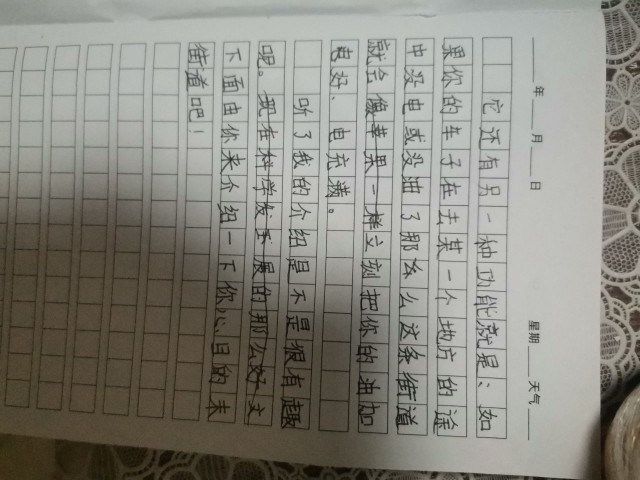 年 月 日 星期 天气
它还有另一种功能就是：如
果你的车子在去某一个地方的途
中没电或没油了那么么这条街道
就会像苹果一样立刻把你的油加
电好、电充满。
听了我的介绍是不是很有趣
呢。现在科学发展的那么好
下面由你来介绍一下你心目的未
街道吧！